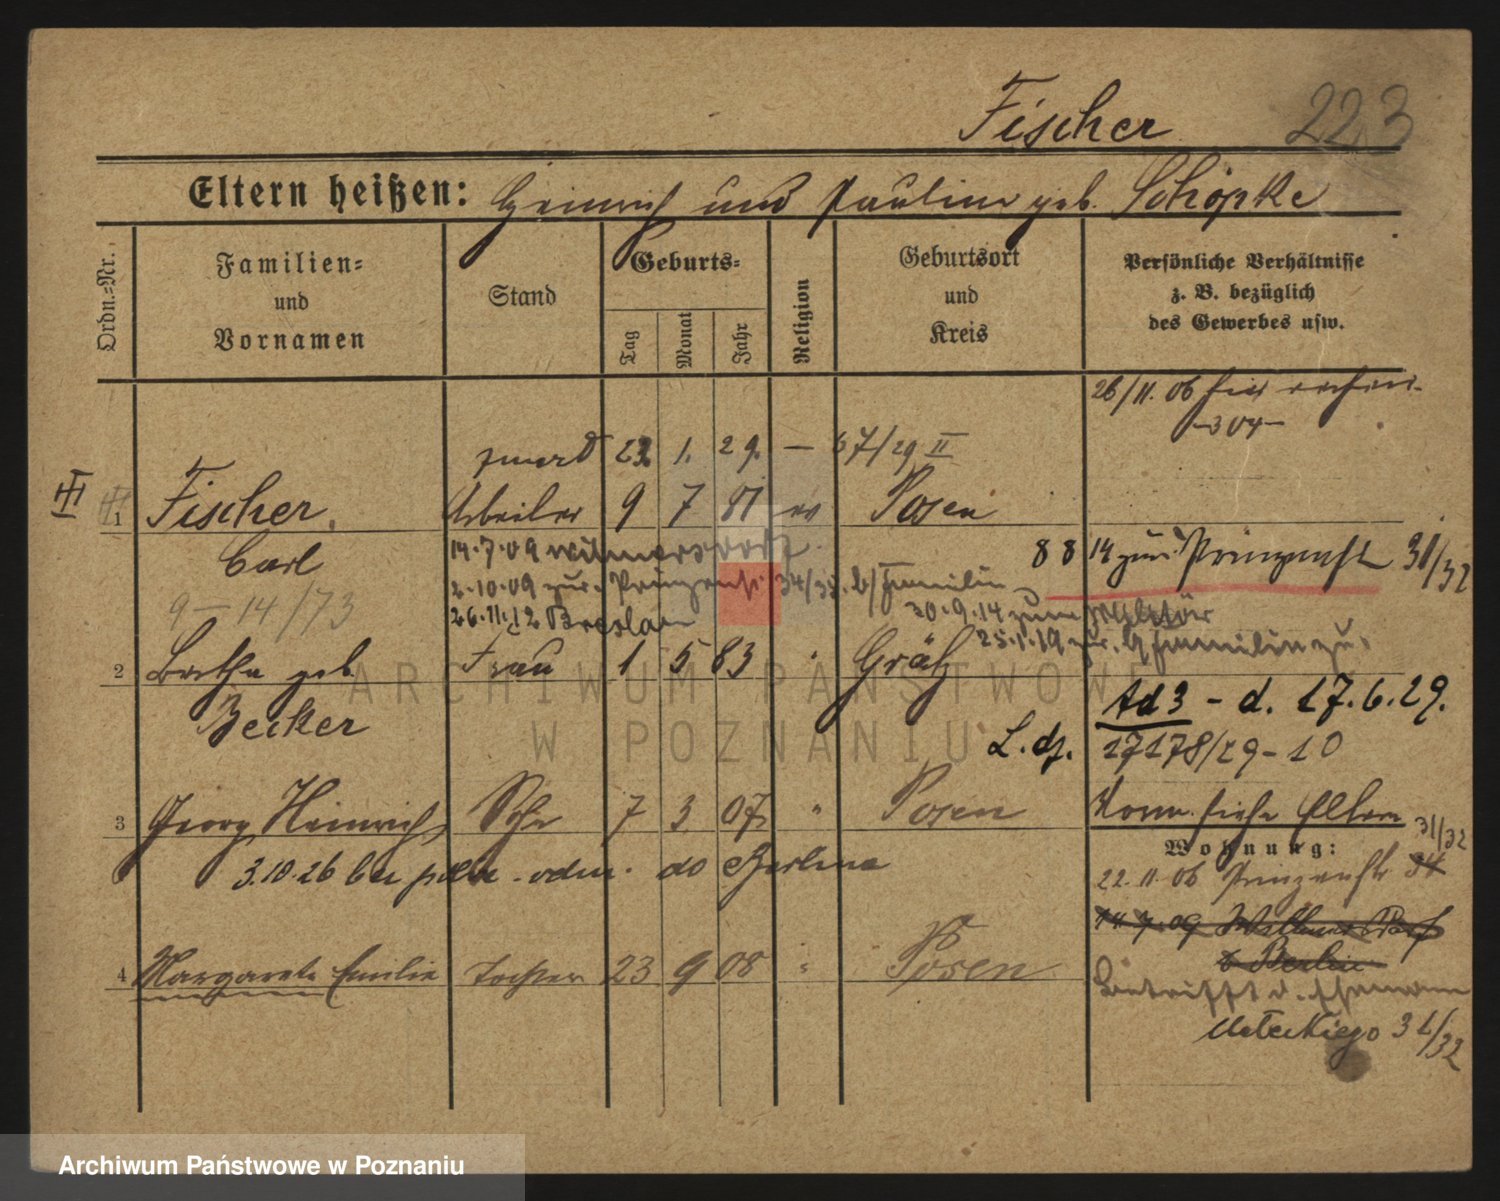 Fischer 223
Eltern heißen: Heinrich und Pauline geb. Schöpke
Ordn.-Nr.
Familien-
und
Vornamen
Stand
Geburts-
Tag
Monat
Jahr
Religion
Geburtsort
und
Kreis
Persönliche Verhältnisse
z. B. bezüglich
des Gewerbes usw.
26/11. 06 hier
-304-
23. 1. 29. — 67/29 II
III
1 Fischer, Arbeiter 9 7 81 ev Posen
Carl
14.7.09 Wilmersdorf
8 8 14 zur. Prinzenstr 31/32
2.10.09 zur. Prinzenstr. 34/35. b/Familie
9-14/73
26.11.12 Breslau
30.9.14 zum Militär
25.1.19 zur. b/Familie zu.
2 Bertha geb. Frau 1 5 83 " Grätz
Becker
Ad 3 - d. 17.6.29.
L. dz. 17178/29-10
3 Georg Heinrich Sohn 7 3 07 " Posen
Konn. siehe Eltern
3.10.26 do Berlina
Wohnung:
31/32
22.11.06 Prinzenstr 34
14.7.09 Wilmersdorf
b Berlin
4 Margarete Emilie Tochter 23 9 08 " Posen
Betrifft d. Ehemann
Mateckiego 31/32
ARCHIWUM PAŃSTWOWE
W POZNANIU
Archiwum Państwowe w Poznaniu